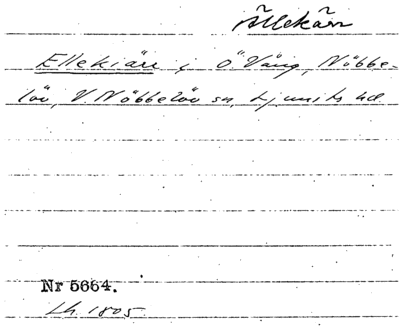 Ällekärr
Ellekiärr i Ö. Väng, Nöbbe-
löv, V Nöbbelöv sn, Ljunits hd
Nr 5664.
Lh. 1805